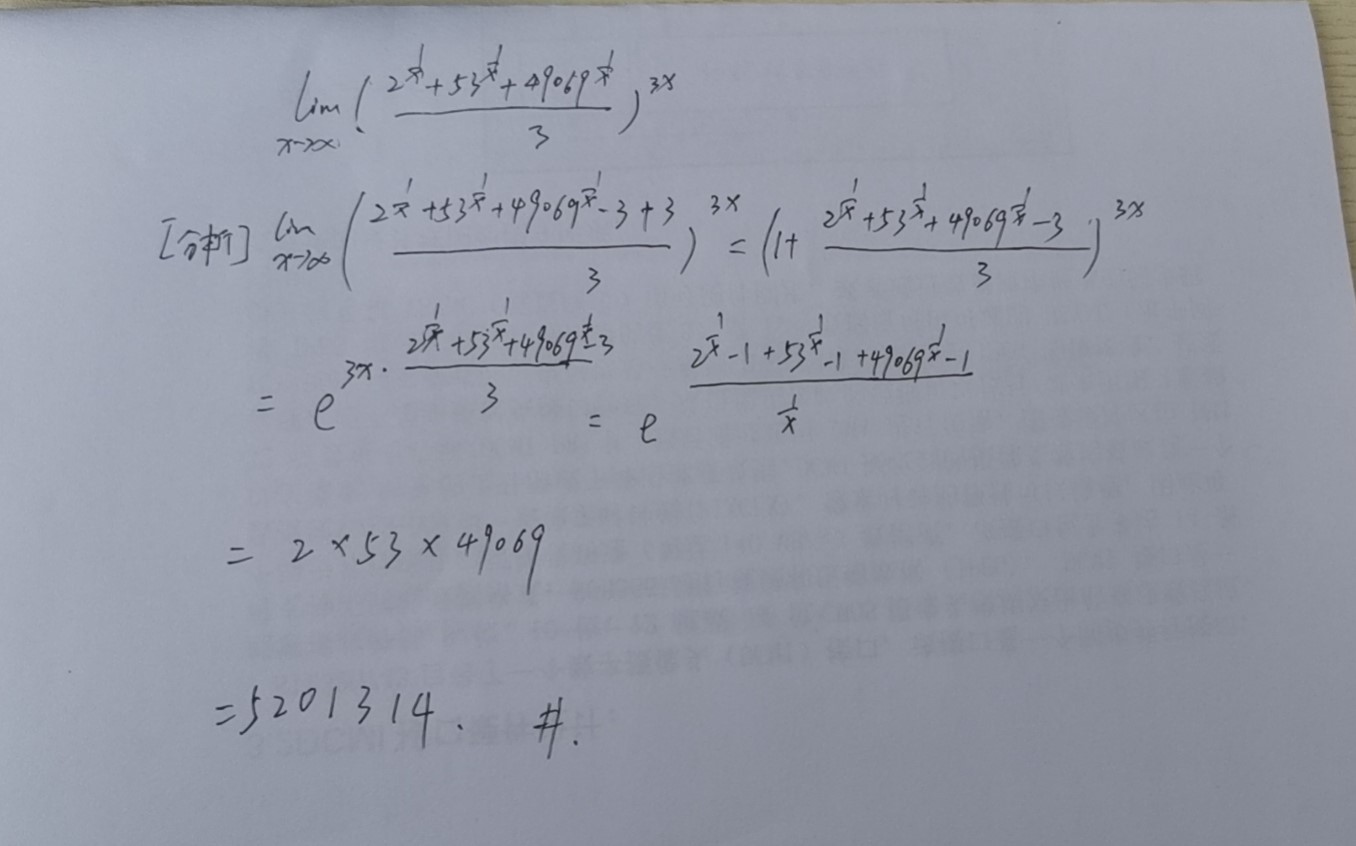 lim x→∞ ( (2^{1/x} + 53^{1/x} + 49069^{1/x}) / 3 )^{3x}
[分析] lim x→∞ ( (2^{1/x} + 53^{1/x} + 49069^{1/x} - 3 + 3) / 3 )^{3x} = (1 + (2^{1/x} + 53^{1/x} + 49069^{1/x} - 3) / 3 )^{3x}
= e^{3x · (2^{1/x} + 53^{1/x} + 49069^{1/x} - 3) / 3} = e^{(2^{1/x} - 1 + 53^{1/x} - 1 + 49069^{1/x} - 1) / (1/x)}
= 2 × 53 × 49069
= 5201314. #.